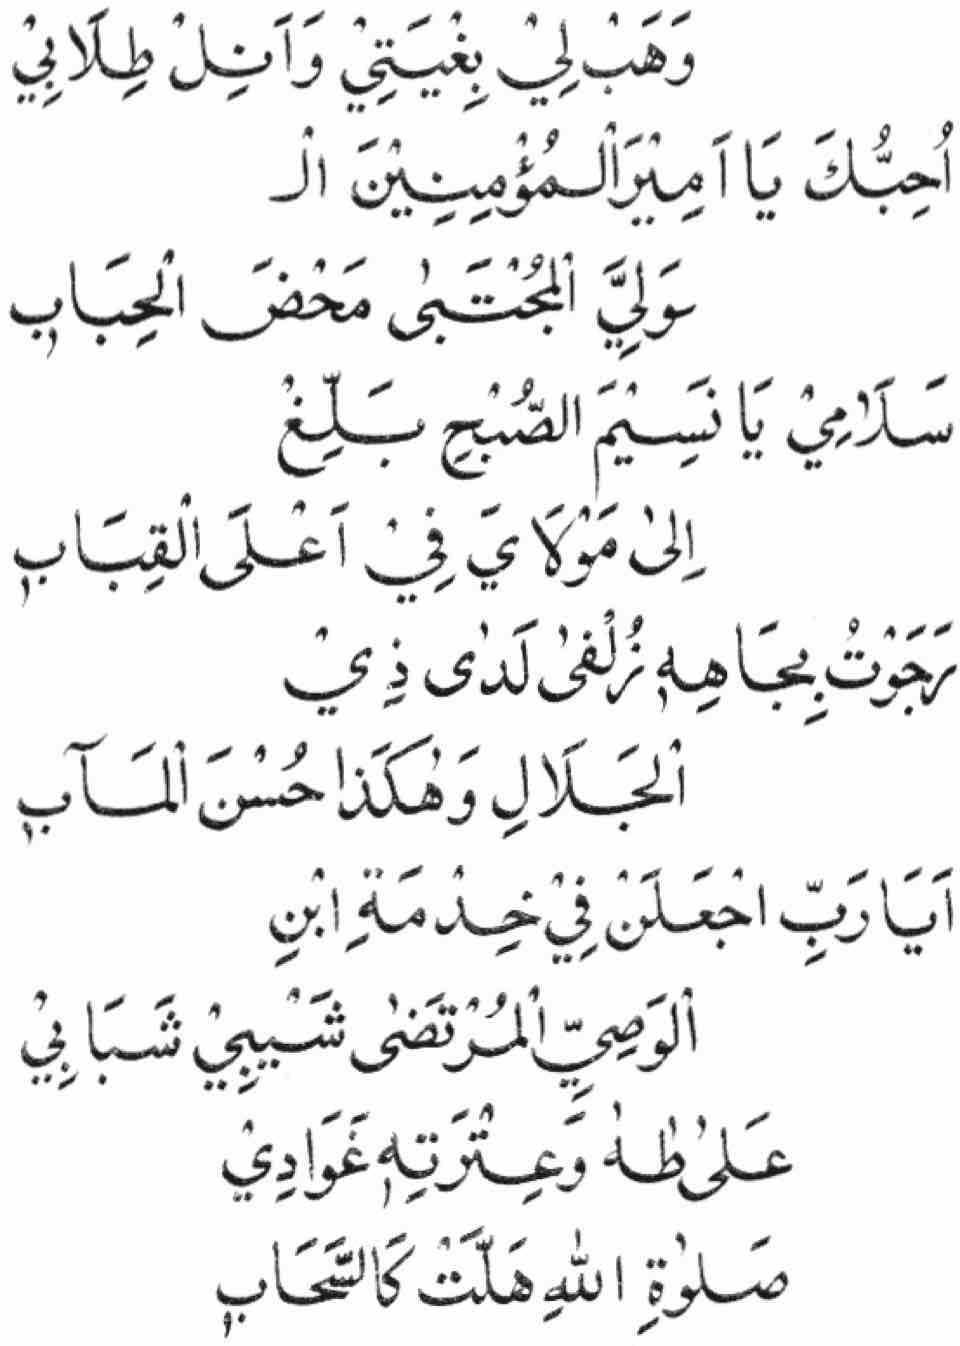 وَهَبْ لِيْ بِغْيَتِيْ وَاَنِلْ طِلَابِيْ
اُحِبُّكَ يَا اَمِيْرَ الْمُؤْمِنِيْنَ الْـ
ـوَلِيَّ الْمُجْتَبٰى مَحْضَ الْحِبَابِ
سَلَامِيْ يَا نَسِيْمَ الصُّبْحِ بَلِّغْ
اِلٰى مَوْلَايَ فِيْ اَعْلَى الْقِبَابِ
رَجَوْتُ بِجَاهِهٖ زُلْفٰى لَدٰى ذِيْ
الْجَلَالِ وَهٰكَذَا حُسْنَ الْمَآبِ
اَيَا رَبِّ اجْعَلَنْ فِيْ خِدْمَةِ ابْنِ
الْوَصِيِّ الْمُرْتَضٰى شَيْبِيْ شَبَابِيْ
عَلٰى طٰهٰ وَعِتْرَتِهٖ غَوَادِيْ
صَلٰوةِ اللهِ هَلَّتْ كَالسَّحَابِ